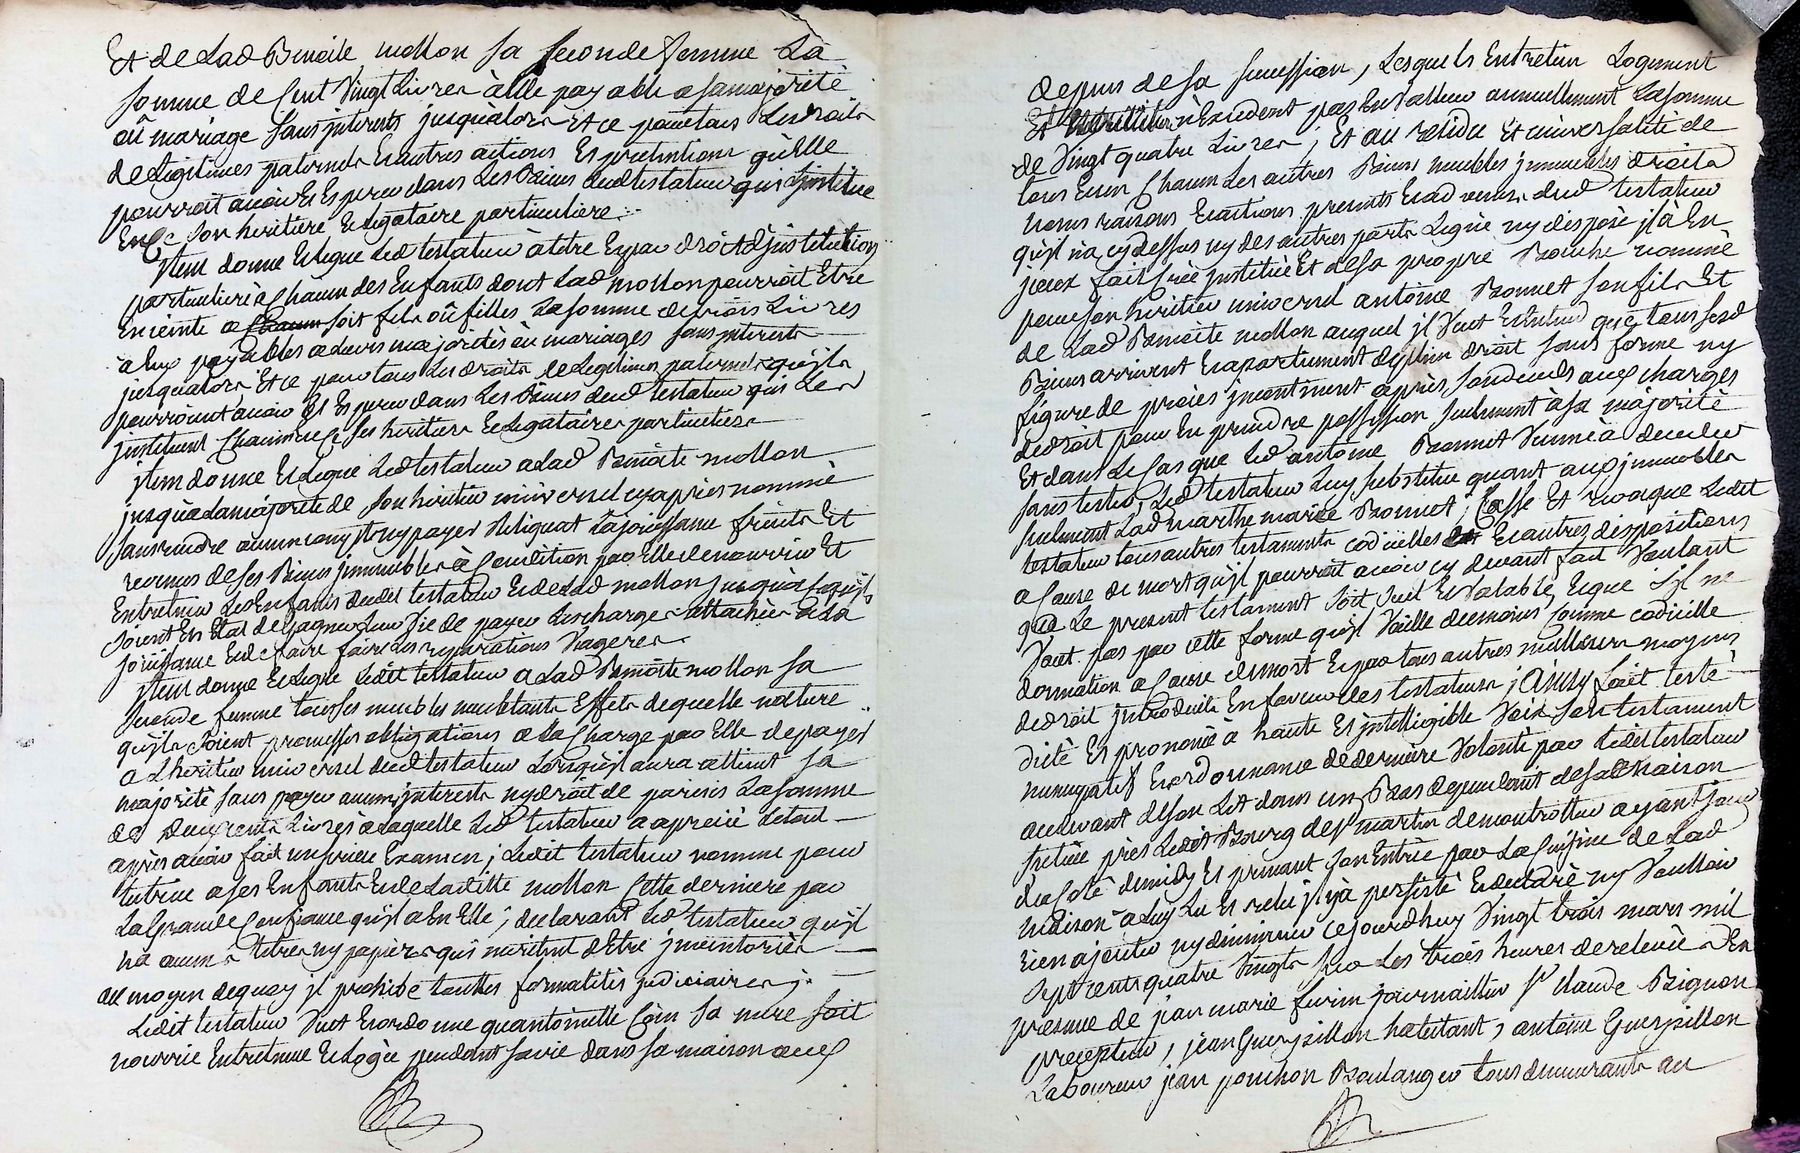 Et de Lad Benoite mollon sa seconde femme La
somme de Cent Vingt Livres à Elle payable a sa majorité
où mariage sans jnterests jusqu'alors Et ce pour tous Les droits
de Legitimes paternels Et autres actions Et pretentions qu'Elle
pourroit avoir Et Esperer dans Les Biens dud testateur qui L'jnstitue
En Ce son heritiere Et Legataire particuliere
jtem donne Et Legue Led testateur à titre Et par droit d'jnstitution
particuliere à Chacun des Enfants dont Lad mollon pourroit Etre
Enceinte soit fils où filles La somme de trois Livres
à Eux payables a Leurs majorités où mariages sans jnterests
jusqu'alors, Et ce pour tous Les droits de Legitimes paternels qu'ils
pourroient avoir Et Esperer dans Les Biens dud testateur qui Les
jnstituent Chacun En Ce ses heritiers Et Legataires particuliers
jtem donne Et Legue Led testateur a Lad Benoite mollon
jusqu'à La majorité de son heritier universel cy apres nommé
sans rendre aucun compte ny payer Reliquat La jouissance fruits Et
revenus de ses Biens jmmeubles à Condition par Elle de nourrir Et
Entretenir Les Enfants dudit testateur Et de Lad mollon jusqu'à Ce qu'ils
soient En Etat de gagner Leur Vie de payer Les charges attachées a La
jouissance Et de faire faire Les reparations Viageres
jtem donne Et Legue Ledit testateur a Lad Benoite mollon sa
seconde femme tous ses meubles meublants Effets de quelle nature
qu'ils soient promesses obligations a La Charge par Elle de payer
a L'heritier universel dud testateur Lorsqu'il aura atteint sa
majorité sans payer aucun jnterests ny droit de parisis La somme
de deux cents Livres a Laquelle Led testateur a aprecié Letout
après avoir fait un serieux Examen; Ledit testateur nomme pour
tutrice a ses Enfants Et de Laditte mollon Cette derniere par
La Grande Confiance qu'il a En Elle; declarant Led testateur qu'il
na aucuns titres ny papiers qui meritent d'Etre jnventoriés
au moyen de quoy jl prohibe touttes formalités judiciaires j.
Ledit testateur Veut Et ordonne qu'antoinette Coin sa mere soit
nourrie Entretenue Et Logée pendant sa vie dans sa maison aux
depens de sa succession, Lesquels Entretien Logement
Et n'Excedent pas En Valleur annuellement La somme
de Vingt quatre Livres; Et au residu Et universalité de
tous Et un Chacun Les autres Biens meubles jmmeubles droits
noms raisons Et actions presents Et ad venir dud testateur
qu'jl n'a cy dessus ny des autres parts Legué ny disposé jl à En
jceux fait Créé jnstitué Et de sa propre Bouche nommé
pour son heritier universel antoine Bonnet son fils Et
de Lad Benoite mollon auquel jl Veut Et Entend que tous sesd
Biens arrivent Et apartiennent de plein droit sans forme ny
figure de procès jncontinent après son decès aux charges
de droit pour En prendre possession seulement à sa majorité
Et dans Le Cas que Led antoine Bonnet Vienne à deceder
sans tester, Led testateur Luy substitue quant aux jmmeubles
seulement Lad marthe marie Bonnet, Casse Et revoque Ledit
testateur tous autres testaments codicilles Et autres dispositions
a Cause de mort qu'jl pourroit avoir cy devant fait Voulant
que Le present testament soit seul Et Valable, Et que s'jl ne
Vaut pas par cette forme qu'jl Vaille du moins Comme codicille
donnation a Cause de mort Et par tous autres meilleurs moyens
de droit jntroduits En faveur des testateurs; Ainsy soit testé
dicté Et prononcé à haute Et jntelligible Voix son testament
nuncupatif Et ordonnance de derniere Volonté par Ledit testateur
au devant de son Lit dans un Bas dependant de sa Maison
scituée près Ledit Bourg de St martin de montrottier ayant jour
du Coté de midy Et prenant son Entrée par La Cuisine de Lad
maison a Luy Lu Et relu jl y à persisté Et declaré ny Vouloir
rien ajouter ny diminuer Cejourd'huy Vingt trois mars mil
sept cents quatre Vingts sur Les trois heures de relevée En
presence de jean marie journaillier Sr Claude Bignon
precepteur, jean Guerpillon habitant, antoine Guerpillon
Laboureur jean ponchon Boulanger tous demeurants au